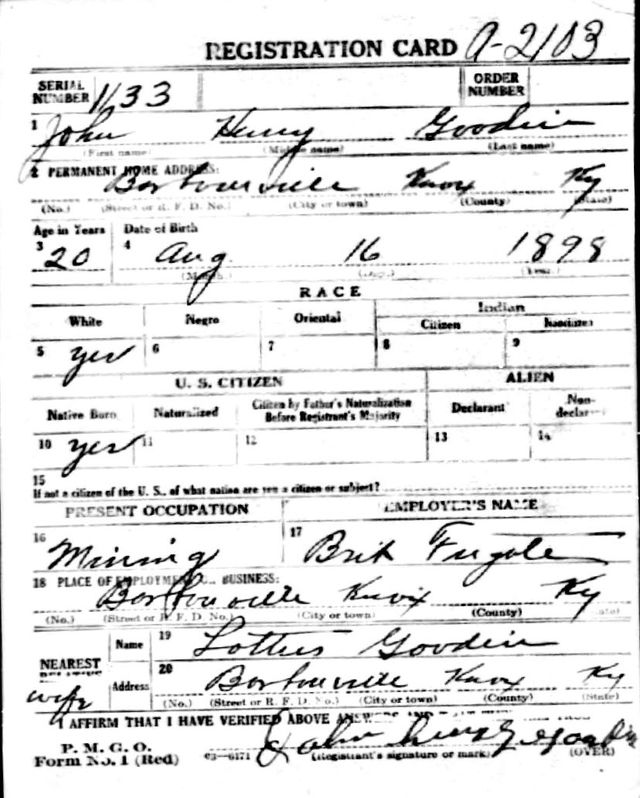 REGISTRATION CARD A-2103
SERIAL NUMBER 1133 ORDER NUMBER
1 John Henry Goodin
(First name) (Middle name) (Last name)
2 PERMANENT HOME ADDRESS:
Barbourville Knox Ky
(No.) (Street or R. F. D. No.) (City or town) (County) (State)
Age in Years Date of Birth
3 20 4 Aug 16 1898
(Month) (Day) (Year)
RACE
White Negro Oriental Indian
Citizen Noncitizen
5 yes 6 7 8 9
U. S. CITIZEN ALIEN
Native Born Naturalized Citizen by Father's Naturalization Before Registrant's Majority Declarant Non-declarant
10 yes 11 12 13 14
15
If not a citizen of the U. S., of what nation are you a citizen or subject?
PRESENT OCCUPATION EMPLOYER'S NAME
16 Mining 17 Brit
18 PLACE OF EMPLOYMENT OR BUSINESS:
Barbourville Knox Ky
(No.) (Street or R. F. D. No.) (City or town) (County) (State)
NEAREST RELATIVE Name 19 Goodin
wife Address 20 Barbourville Knox Ky
(No.) (Street or R. F. D. No.) (City or town) (County) (State)
I AFFIRM THAT I HAVE VERIFIED ABOVE ANSWERS AND THAT THEY ARE TRUE
P. M. G. O.
Form No. 1 (Red) 03—6171 John Henry Goodin
(Registrant's signature or mark) (OVER)